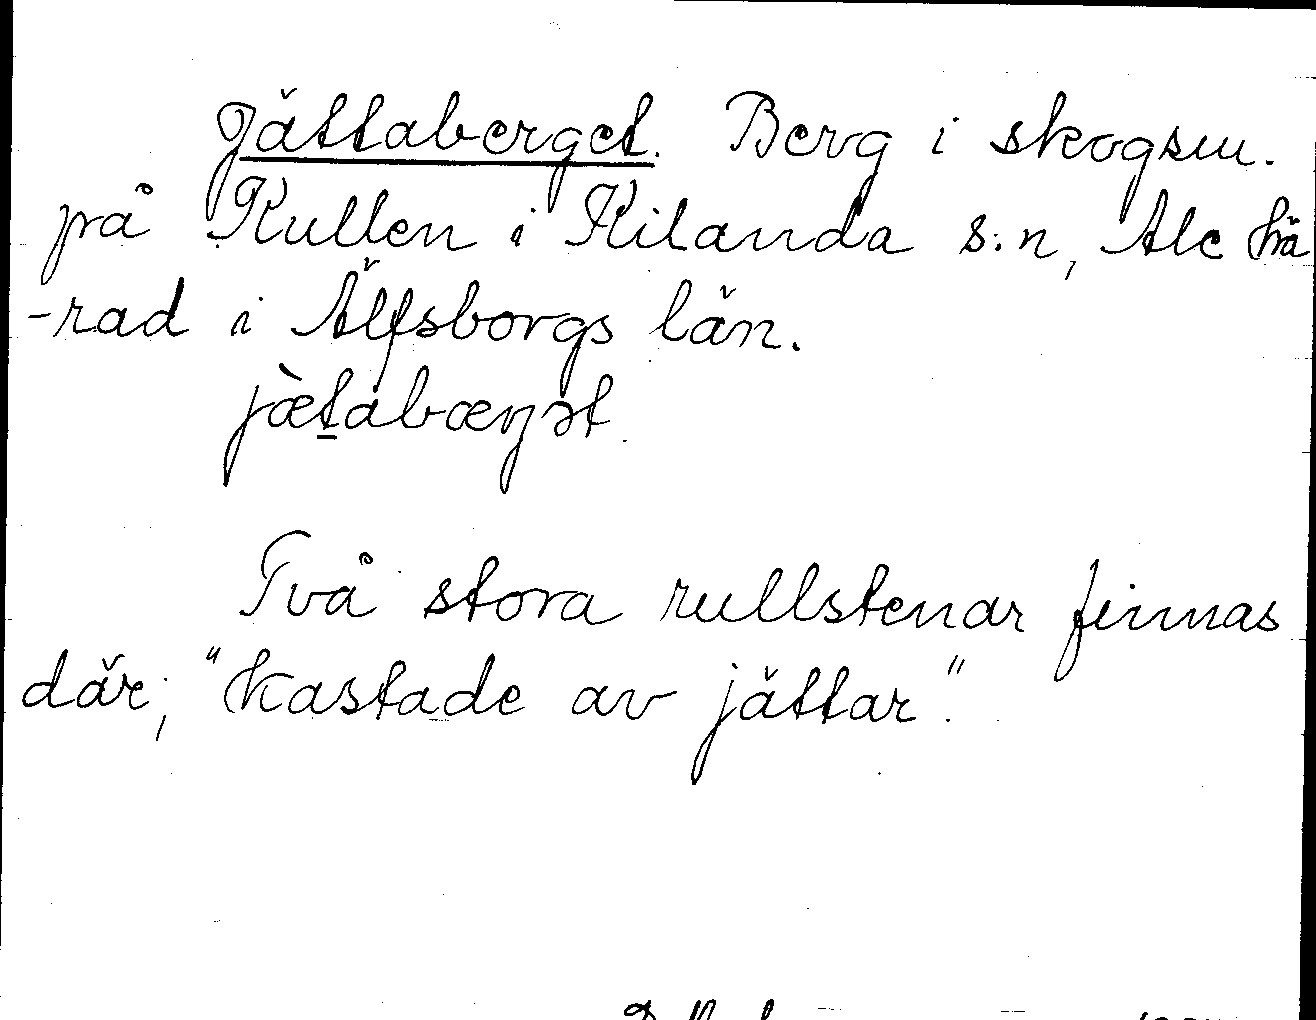 Jättaberget. Berg i skogsm.
på Kullen i Kilanda s:n, Ale hä
-rad i Älfsborgs län.
jæ̀t̠abæŋət.
Två stora rullstenar finnas
där; "kastade av jättar".